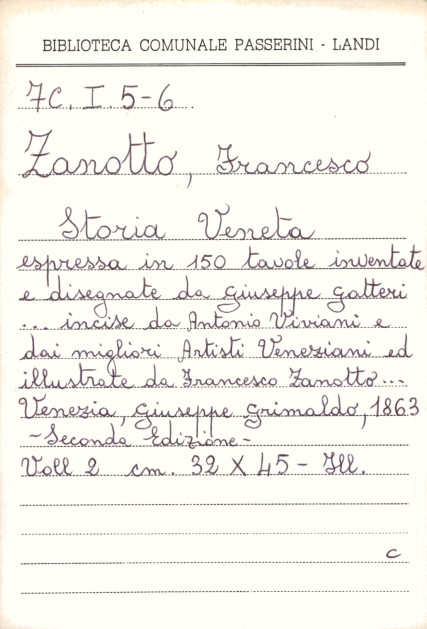 BIBLIOTECA COMUNALE PASSERINI - LANDI
7C. I. 5-6.
Zanotto, Francesco
Storia Veneta
espressa in 150 tavole inventate
e disegnate da Giuseppe Gatteri
... incise da Antonio Viviani e
dai migliori Artisti Veneziani ed
illustrate da Francesco Zanotto...
Venezia, Giuseppe Grimaldo, 1863
-Seconda Edizione-
Voll 2 cm. 32 X 45 - Ill.
c